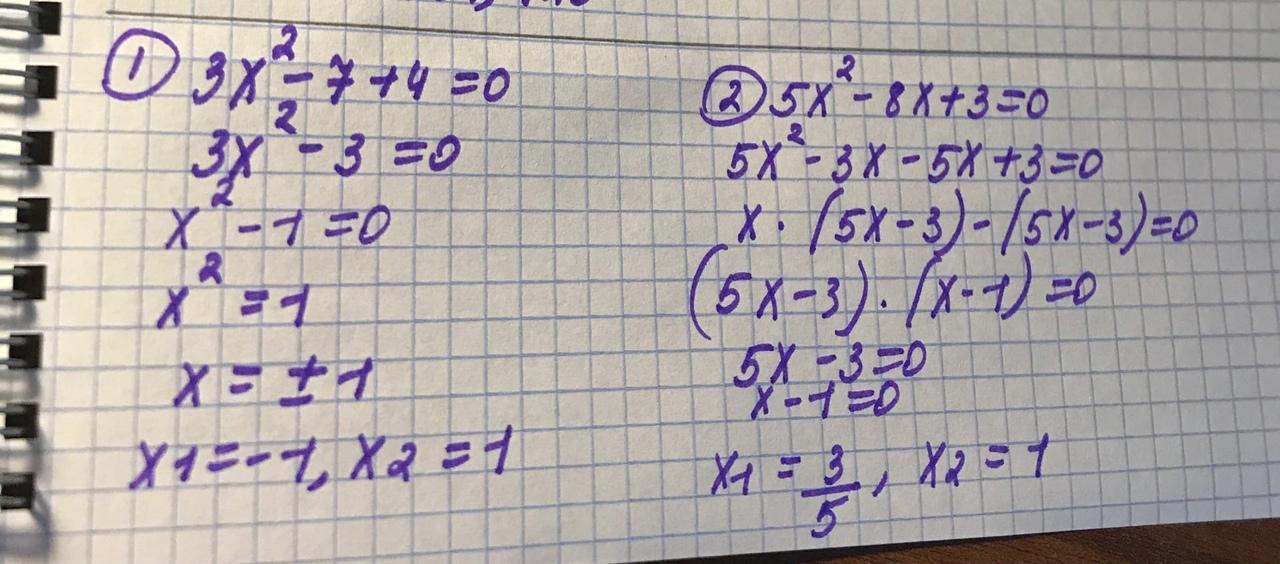 ① 3x² - 7 + 4 = 0
3x² - 3 = 0
x² - 1 = 0
x² = 1
x = ± 1
x1 = -1, x2 = 1
② 5x² - 8x + 3 = 0
5x² - 3x - 5x + 3 = 0
x · (5x - 3) - (5x - 3) = 0
(5x - 3) · (x - 1) = 0
5x - 3 = 0
x - 1 = 0
x1 = 3/5, x2 = 1